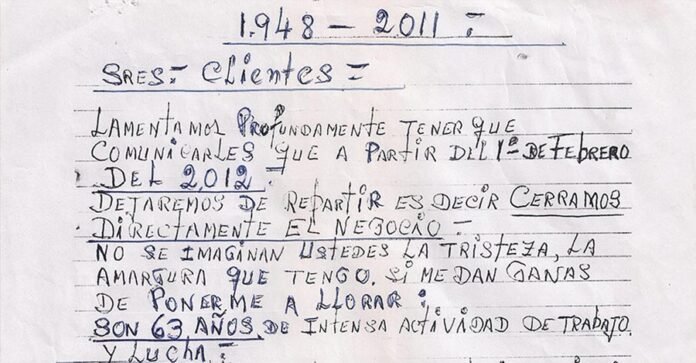 1.948 - 2011 =
SRES = CLIENTES =
LAMENTAMOS PROFUNDAMENTE TENER QUE
COMUNICARLES QUE A PARTIR DEL 1º DE FEBRERO
DEL 2,012 =
DEJAREMOS DE REPARTIR ES DECIR CERRAMOS
DIRECTAMENTE EL NEGOCIO =
NO SE IMAGINAN USTEDES LA TRISTEZA, LA
AMARGURA QUE TENGO. SI ME DAN GANAS
DE PONERME A LLORAR :
SON 63 AÑOS, DE INTENSA ACTIVIDAD DE TRABAJO
Y LUCHA =